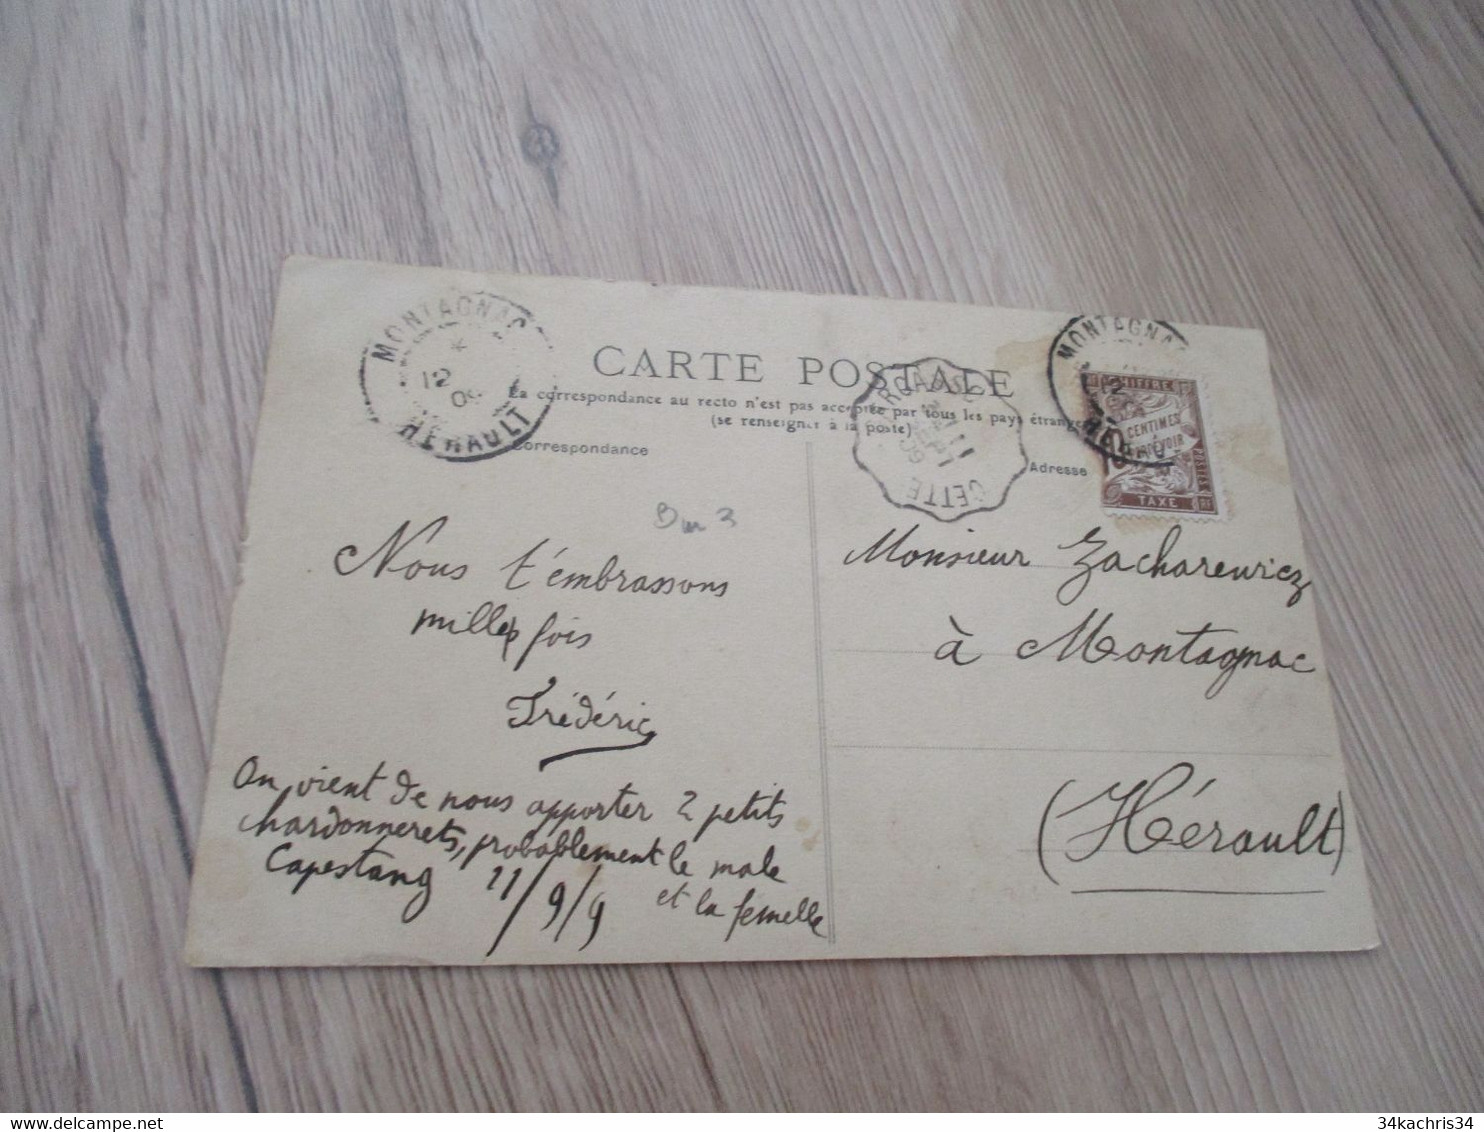 MONTAGNAC
12
09
HÉRAULT
CARTE POSTALE
La correspondance au recto n'est pas acceptée par tous les pays étrangers
(se renseigner à la poste)
Correspondance
Adresse
MONTAGNAC
12
HÉRAULT
11
09
CETTE
CHIFFRE
10 CENTIMES
À PERCEVOIR
POSTES
TAXE
RF
Nous t'embrassons
mille fois
Frédéric
On vient de nous apporter 2 petits
chardonnerets, probablement le male
et la femelle
Capestang 11/9/9
Monsieur Zacharewicz
à Montagnac
(Hérault)
34kachris34